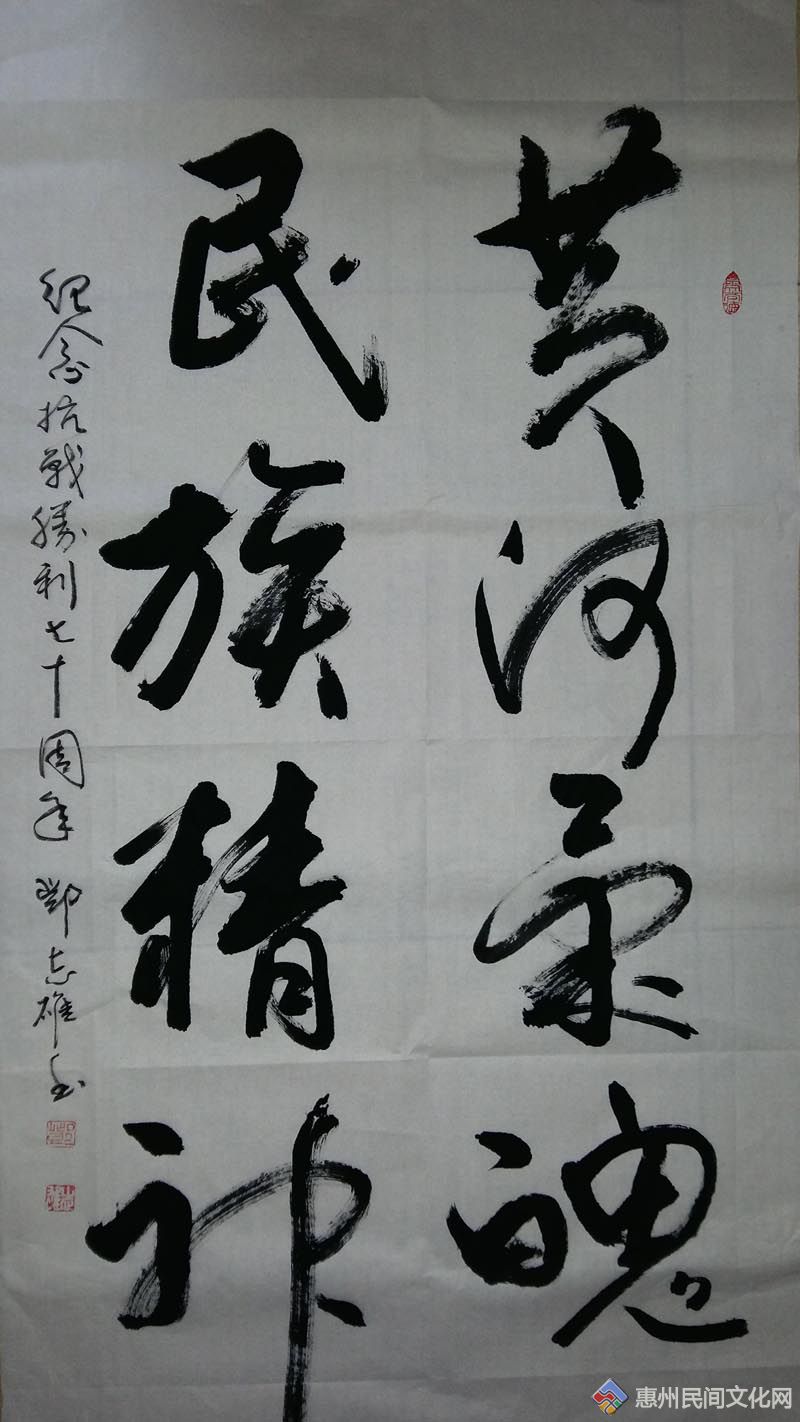 黄河气魄
民族精神
纪念抗戰勝利七十周年 鄧志雄书
惠州民间文化网